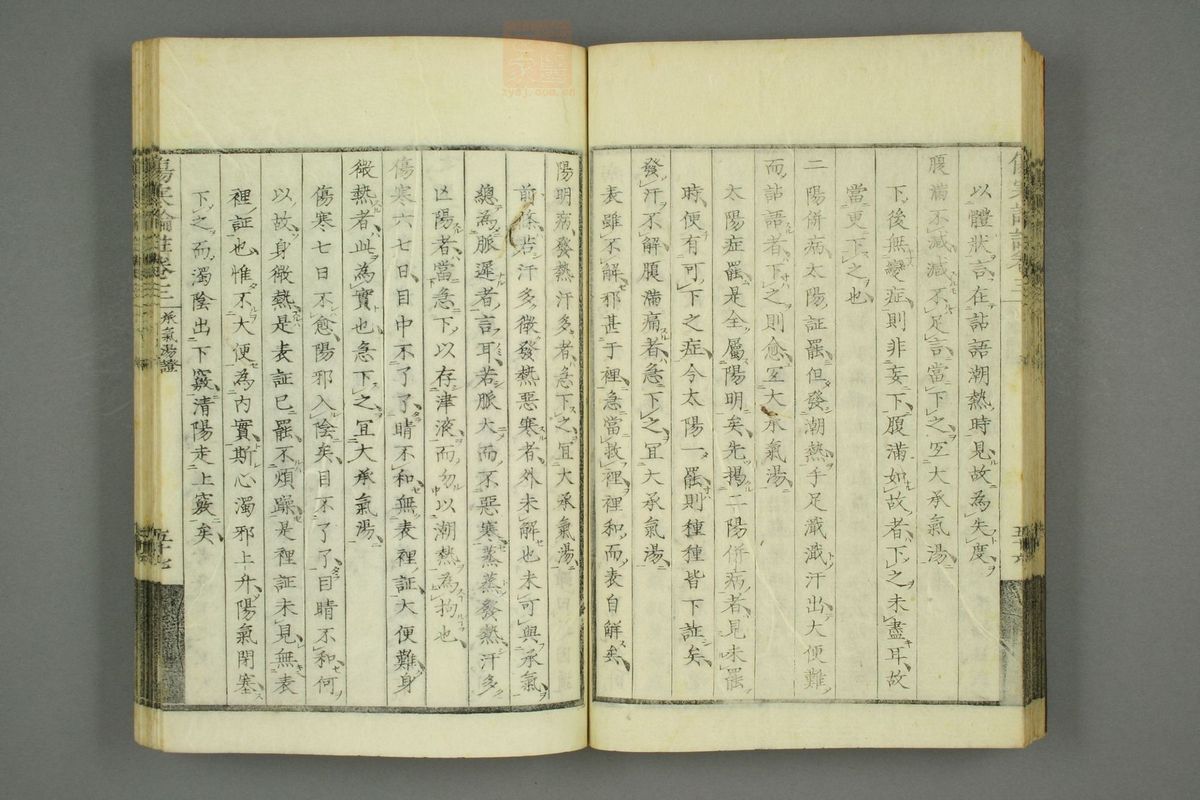 以體狀言在詀語潮熱時見故為失度
腹滿不減減不足言當下之宜大承氣湯
下後無變症則非妄下腹滿如故者下之未盡耳故
當更下之也
二陽併病太陽証罷但發潮熱手足濈濈汗出大便難
而詀語者下之則愈宜大承氣湯
太陽症罷是全屬陽明矣先揭二陽併病者見未罷
時便有可下之症今太陽一罷則種種皆下証矣
發汗不解腹滿痛者急下之宜大承氣湯
表雖不解邪甚于裡急當救裡裡和而表自解矣
陽明病發熱汗多者急下之宜大承氣湯
前條若汗多微發熱惡寒者外未解也未可與承氣
總為脈遲者言耳若脈大而不惡寒蒸蒸發熱汗多
亡陽者當急下以存津液而勿以潮熱為拘也
傷寒六七日目中不了了睛不和無表裡証大便難身
微熱者此為實也急下之宜大承氣湯
傷寒七日不愈陽邪入陰矣目不了了目睛不和何
以故身微熱是表証已罷不煩躁是裡証未見無表
裡証也惟不大便為內實斯心濁邪上升陽氣閉塞
下之而濁陰出下竅清陽走上竅矣
傷寒論註卷三
承氣湯證
五十七